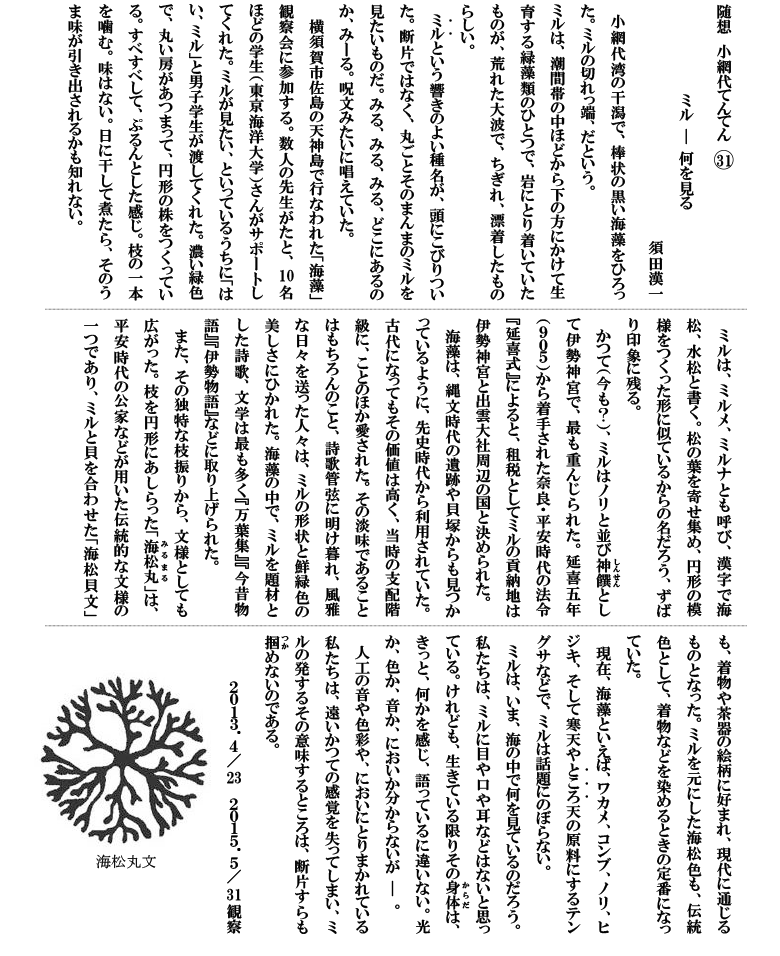 随想 小網代てんてん ㉛
ミル ― 何を見る
須田漢一
小網代湾の干潟で、棒状の黒い海藻をひろっ
た。ミルの切れっ端、だという。
ミルは、潮間帯の中ほどから下の方にかけて生
育する緑藻類のひとつで、岩にとり着いていた
ものが、荒れた大波で、ちぎれ、漂着したもの
らしい。
ミルという響きのよい種名が、頭にこびりつい
た。断片ではなく、丸ごとそのまんまのミルを
見たいものだ。みる、みる、みる、どこにあるの
か、みーる。呪文みたいに唱えていた。
横須賀市佐島の天神島で行なわれた「海藻」
観察会に参加する。数人の先生がたと、10名
ほどの学生(東京海洋大学)さんがサポートし
てくれた。ミルが見たい、といっているうちに「は
い、ミル」と男子学生が渡してくれた。濃い緑色
で、丸い房があつまって、円形の株をつくってい
る。すべすべして、ぷるんとした感じ。枝の一本
を噛む。味はない。日に干して煮たら、そのう
ま味が引き出されるかも知れない。
ミルは、ミルメ、ミルナとも呼び、漢字で海
松、水松と書く。松の葉を寄せ集め、円形の模
様をつくった形に似ているからの名だろう、ずば
り印象に残る。
かつて(今も?)、ミルはノリと並び神饌(しんせん)とし
て伊勢神宮で、最も重んじられた。延喜五年
(905)から着手された奈良・平安時代の法令
『延喜式』によると、租税としてミルの貢納地は
伊勢神宮と出雲大社周辺の国と決められた。
海藻は、縄文時代の遺跡や貝塚からも見つか
っているように、先史時代から利用されていた。
古代になってもその価値は高く、当時の支配階
級に、ことのほか愛された。その淡味であること
はもちろんのこと、詩歌管弦に明け暮れ、風雅
な日々を送った人々は、ミルの形状と鮮緑色の
美しさにひかれた。海藻の中で、ミルを題材と
した詩歌、文学は最も多く『万葉集』『今昔物
語』『伊勢物語』などに取り上げられた。
また、その独特な枝振りから、文様としても
広がった。枝を円形にあしらった「海松丸(みるまる)」は、
平安時代の公家などが用いた伝統的な文様の
一つであり、ミルと貝を合わせた「海松貝文」
も、着物や茶器の絵柄に好まれ、現代に通じる
ものとなった。ミルを元にした海松色も、伝統
色として、着物などを染めるときの定番になっ
ていた。
現在、海藻といえば、ワカメ、コンブ、ノリ、ヒ
ジキ、そして寒天やところ天の原料にするテン
グサなどで、ミルは話題にのぼらない。
ミルは、いま、海の中で何を見ているのだろう。
私たちは、ミルに目や口や耳などはないと思っ
ている。けれども、生きている限りその身体(からだ)は、
きっと、何かを感じ、語っているに違いない。光
か、色か、音か、においか分からないが ― 。
人工の音や色彩や、においにとりまかれている
私たちは、遠いかつての感覚を失ってしまい、ミ
ルの発するその意味するところは、断片すらも
掴(つか)めないのである。
2013.4/23 2015.5/31観察
海松丸文